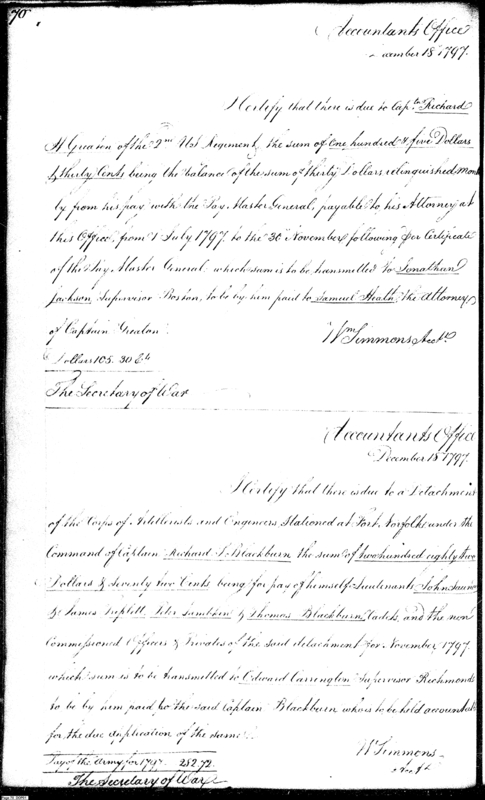 70
Accountants Office
December 18 1797.
I Certify that there is due to Captn. Richard
H Greaton of the 2nd Ust Regiment, the sum of One hundred & five Dollars
& thirty Cents being the balance of the sum of thirty Dollars relinquished month
ly from his pay with the Pay Master General, payable to his Attorney at
this Office, from 1 July 1797 to the 30 November following per Certificate
of the Pay Master General: which sum is to be transmitted to Jonathan
Jackson, Supervisor Boston, to be by him paid to Samuel Heath the Attorney
of Captain Greaton.
Wm Simmons Acct.
Dollars 105. 30 Cts
The Secretary of War
Accountants Office
December 18 1797.
I Certify that there is due to a Detachment
of the Corps of Artillerists and Engineers Stationed at Fort Norfolk under the
Command of Captain Richard S. Blackburn the sum of two hundred eighty two
Dollars & seventy two Cents being for pay of himself Lieutenants John
& James Triplett, Peter & Thomas Blackburn Cadets, and the non
Commissioned Officers & Privates of the said detachment for November 1797.
which sum is to be transmitted to Edward Carrington Supervisor Richmond
to be by him paid to the said Captain Blackburn who is to be held accountable
for the due application of the same.
Wm Simmons
Acct
Pay of the Army for 1797. 282.72
The Secretary of War